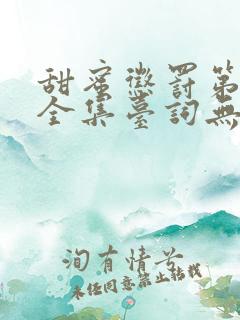 甜蜜懲罰第
全集臺詞無
洵有情兮
未經同意禁止轉載